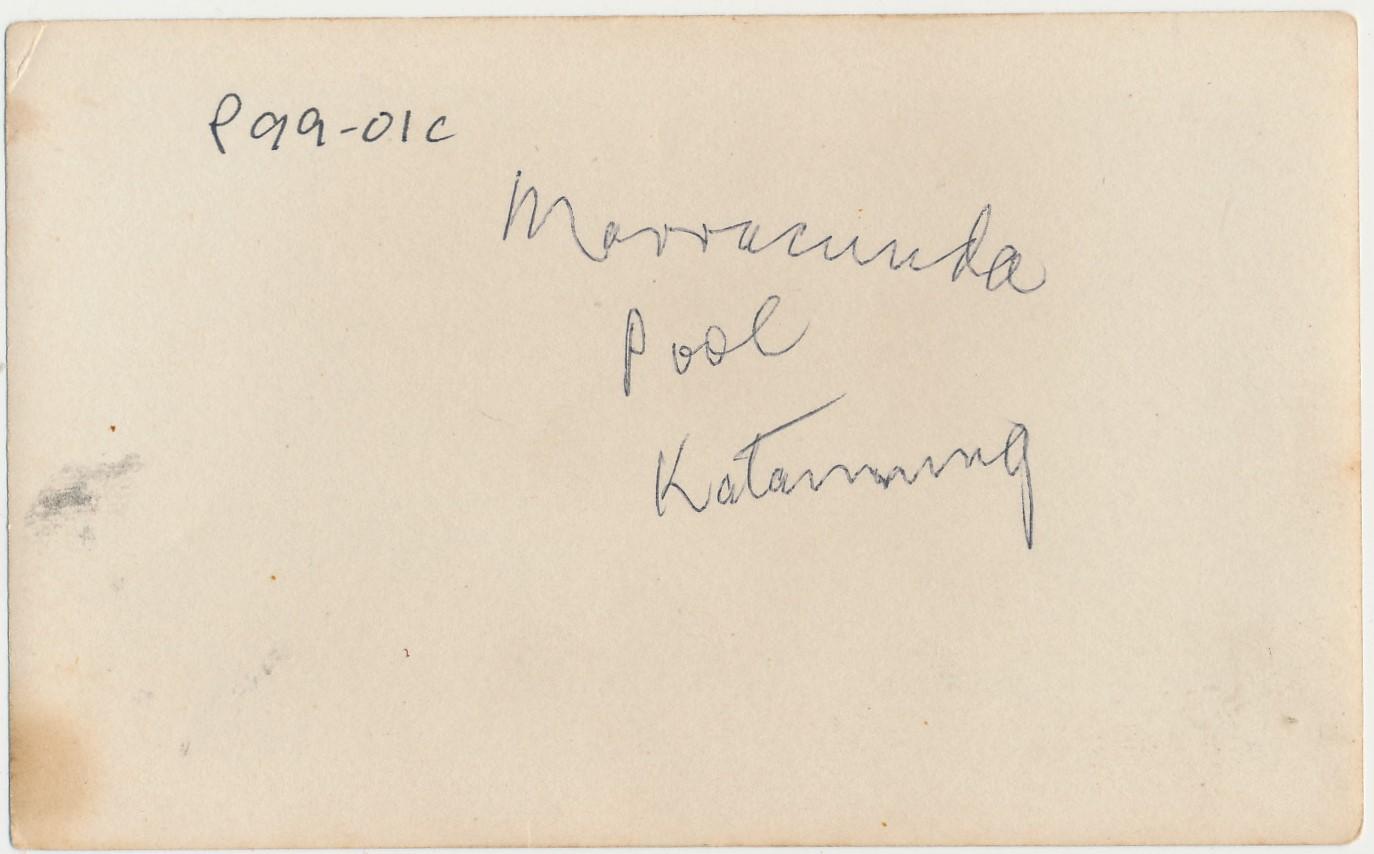 P99-01c
Marracunda
Pool
Katanning